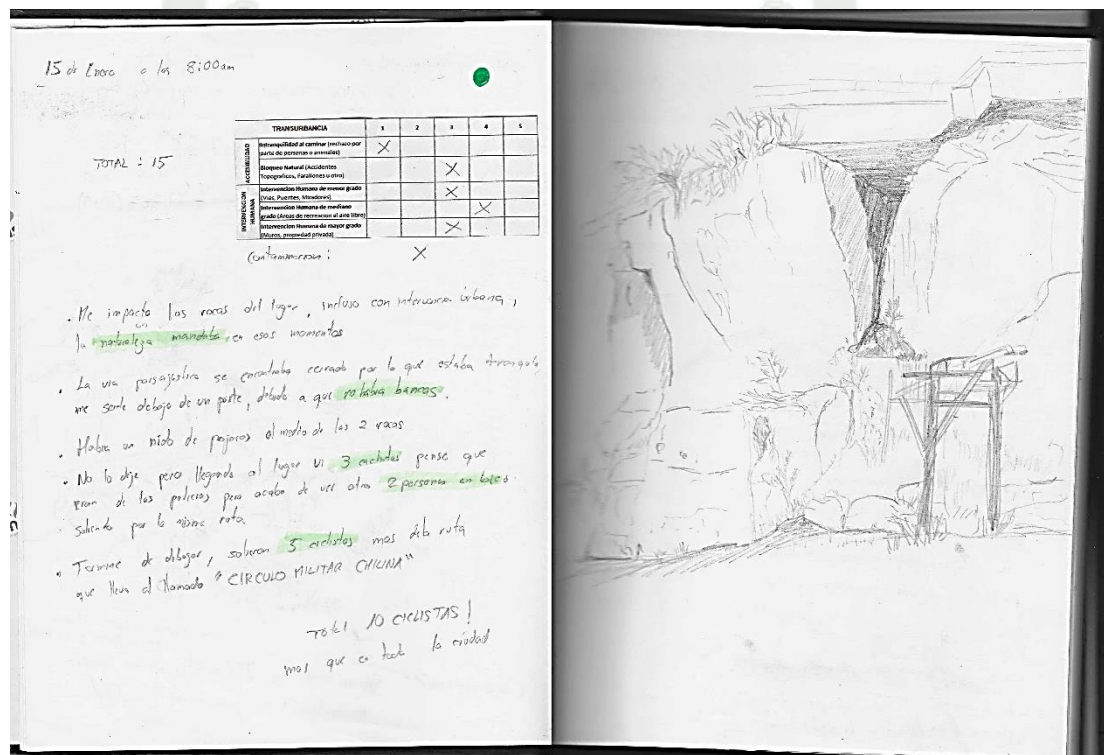 15 de Enero a las 8:00am
TOTAL : 15
TRANSURBANCIA 1 2 3 4 5
ACCESIBILIDAD
Intranquilidad al caminar (rechazo por
parte de personas o animales) X
Bloqueo Natural (Accidentes
Topograficos, Farallones u otro) X
INTERVENCION HUMANA
Intervencion Humana de menor grado
(Vias, Puentes, Miradores) X
Intervencion Humana de mediano
grado (Areas de recreacion al aire libre) X
Intervencion Humana de mayor grado
(Muros, propiedad privada) X
Contaminacion : X
• Me impacto las rocas del lugar, incluso con intervencion urbana,
la naturaleza mandaba en esos momentos
• La via paisajistica se encontraba cerrado por lo que estaba tranquilo,
me sente debajo de un poste, debido a que no habia bancas.
• Habia un nido de pajaros al medio de las 2 rocas
• No lo dije pero llegando al lugar vi 3 ciclistas pense que
eran de los policias pero acabo de ver otra 2 personas en bicis
saliendo por la misma ruta
• Termine de dibujar, salieron 5 ciclistas mas de la ruta
que lleva al llamado "CIRCULO MILITAR CHILINA"
Total 10 CICLISTAS!
mas que en toda la ciudad